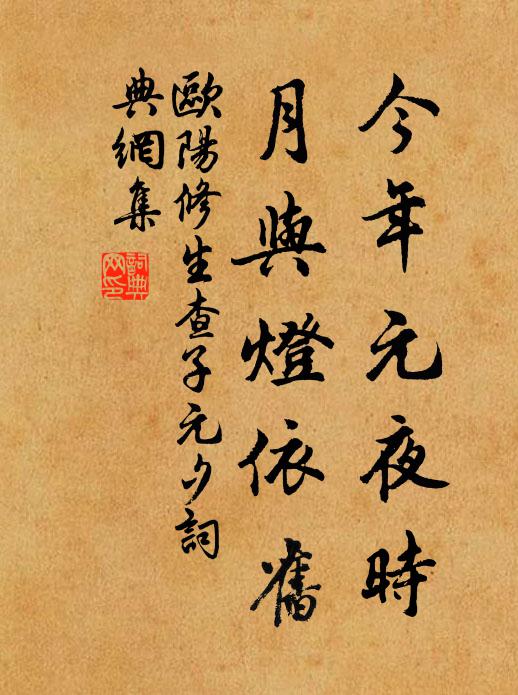 今年元夜時
月與燈依舊
歐陽修生查子元夕詞
典網集
詞典網印